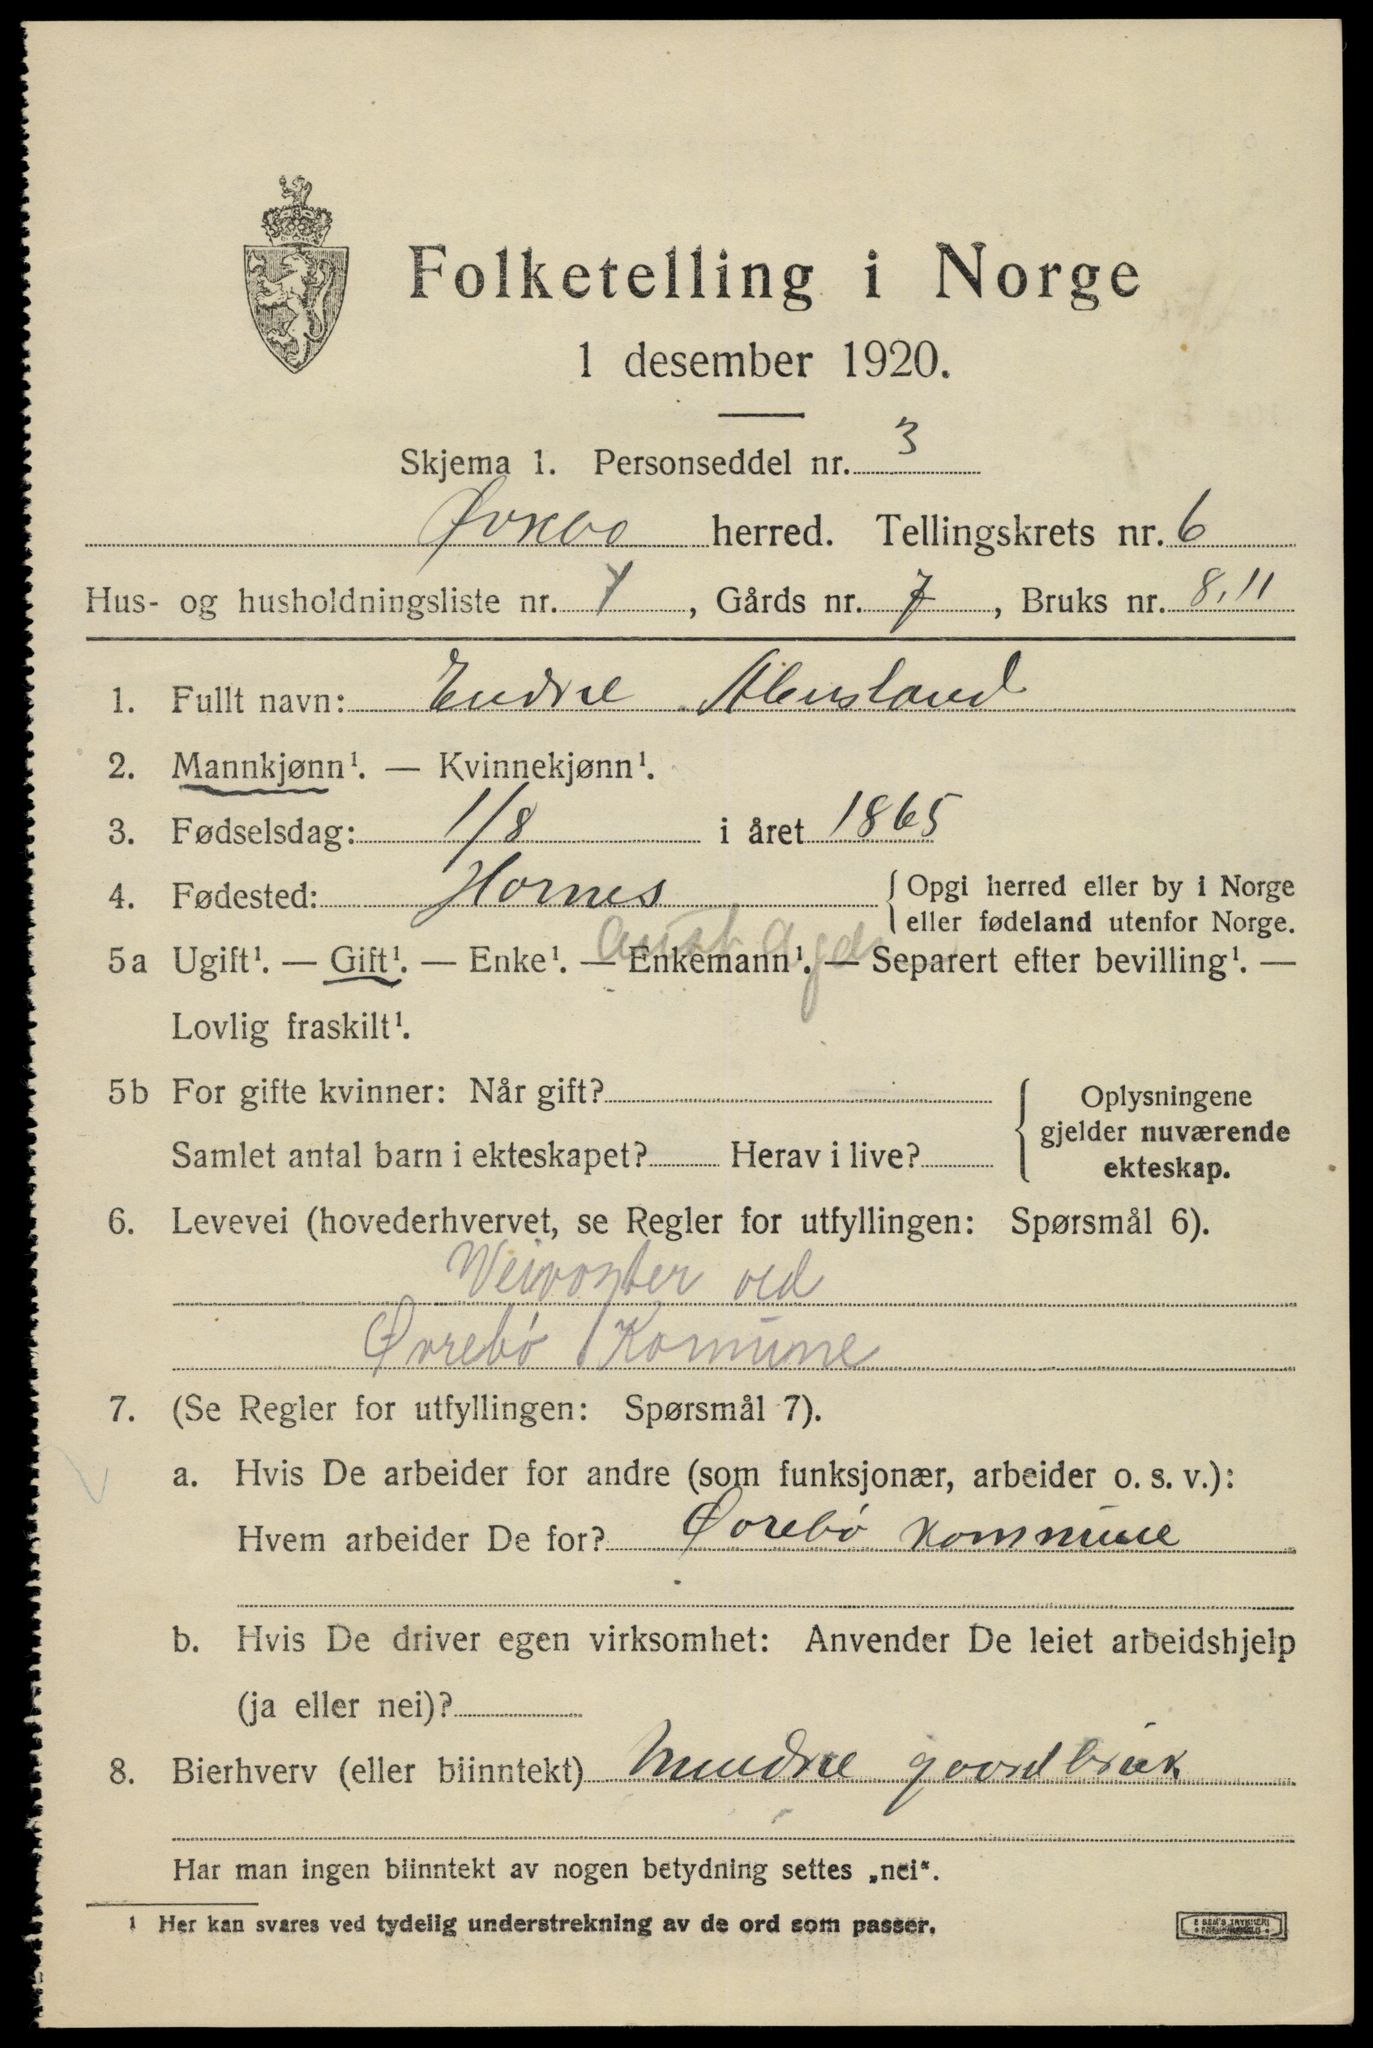 Folketelling i Norge
1 desember 1920.
Skjema 1. Personseddel nr. 3
Øvrebo herred. Tellingskrets nr. 6
Hus- og husholdningsliste nr. , Gårds nr. 7, Bruks nr. 8, 11
1. Fullt navn: Endre Abusland
2. Mannkjønn¹. — Kvinnekjønn¹.
3. Fødselsdag: 1/8 i året 1865
4. Fødested: Hornes { Opgi herred eller by i Norge
eller fødeland utenfor Norge.
Aust Agder
5a Ugift¹. — Gift¹. — Enke¹. — Enkemann¹. — Separert efter bevilling¹. —
Lovlig fraskilt¹.
5b For gifte kvinner: Når gift? { Oplysningene
gjelder nuværende
Samlet antal barn i ekteskapet? Herav i live? ekteskap.
6. Levevei (hovederhvervet, se Regler for utfyllingen: Spørsmål 6).
Veivogter ved
Øvrebö Komune
7. (Se Regler for utfyllingen: Spørsmål 7).
a. Hvis De arbeider for andre (som funksjonær, arbeider o. s. v.):
Hvem arbeider De for? Øvrebö kommune
b. Hvis De driver egen virksomhet: Anvender De leiet arbeidshjelp
(ja eller nei)?
8. Bierhverv (eller biinntekt) Mindre gaardbruk
Har man ingen biinntekt av nogen betydning settes „nei“.
1 Her kan svares ved tydelig understrekning av de ord som passer.